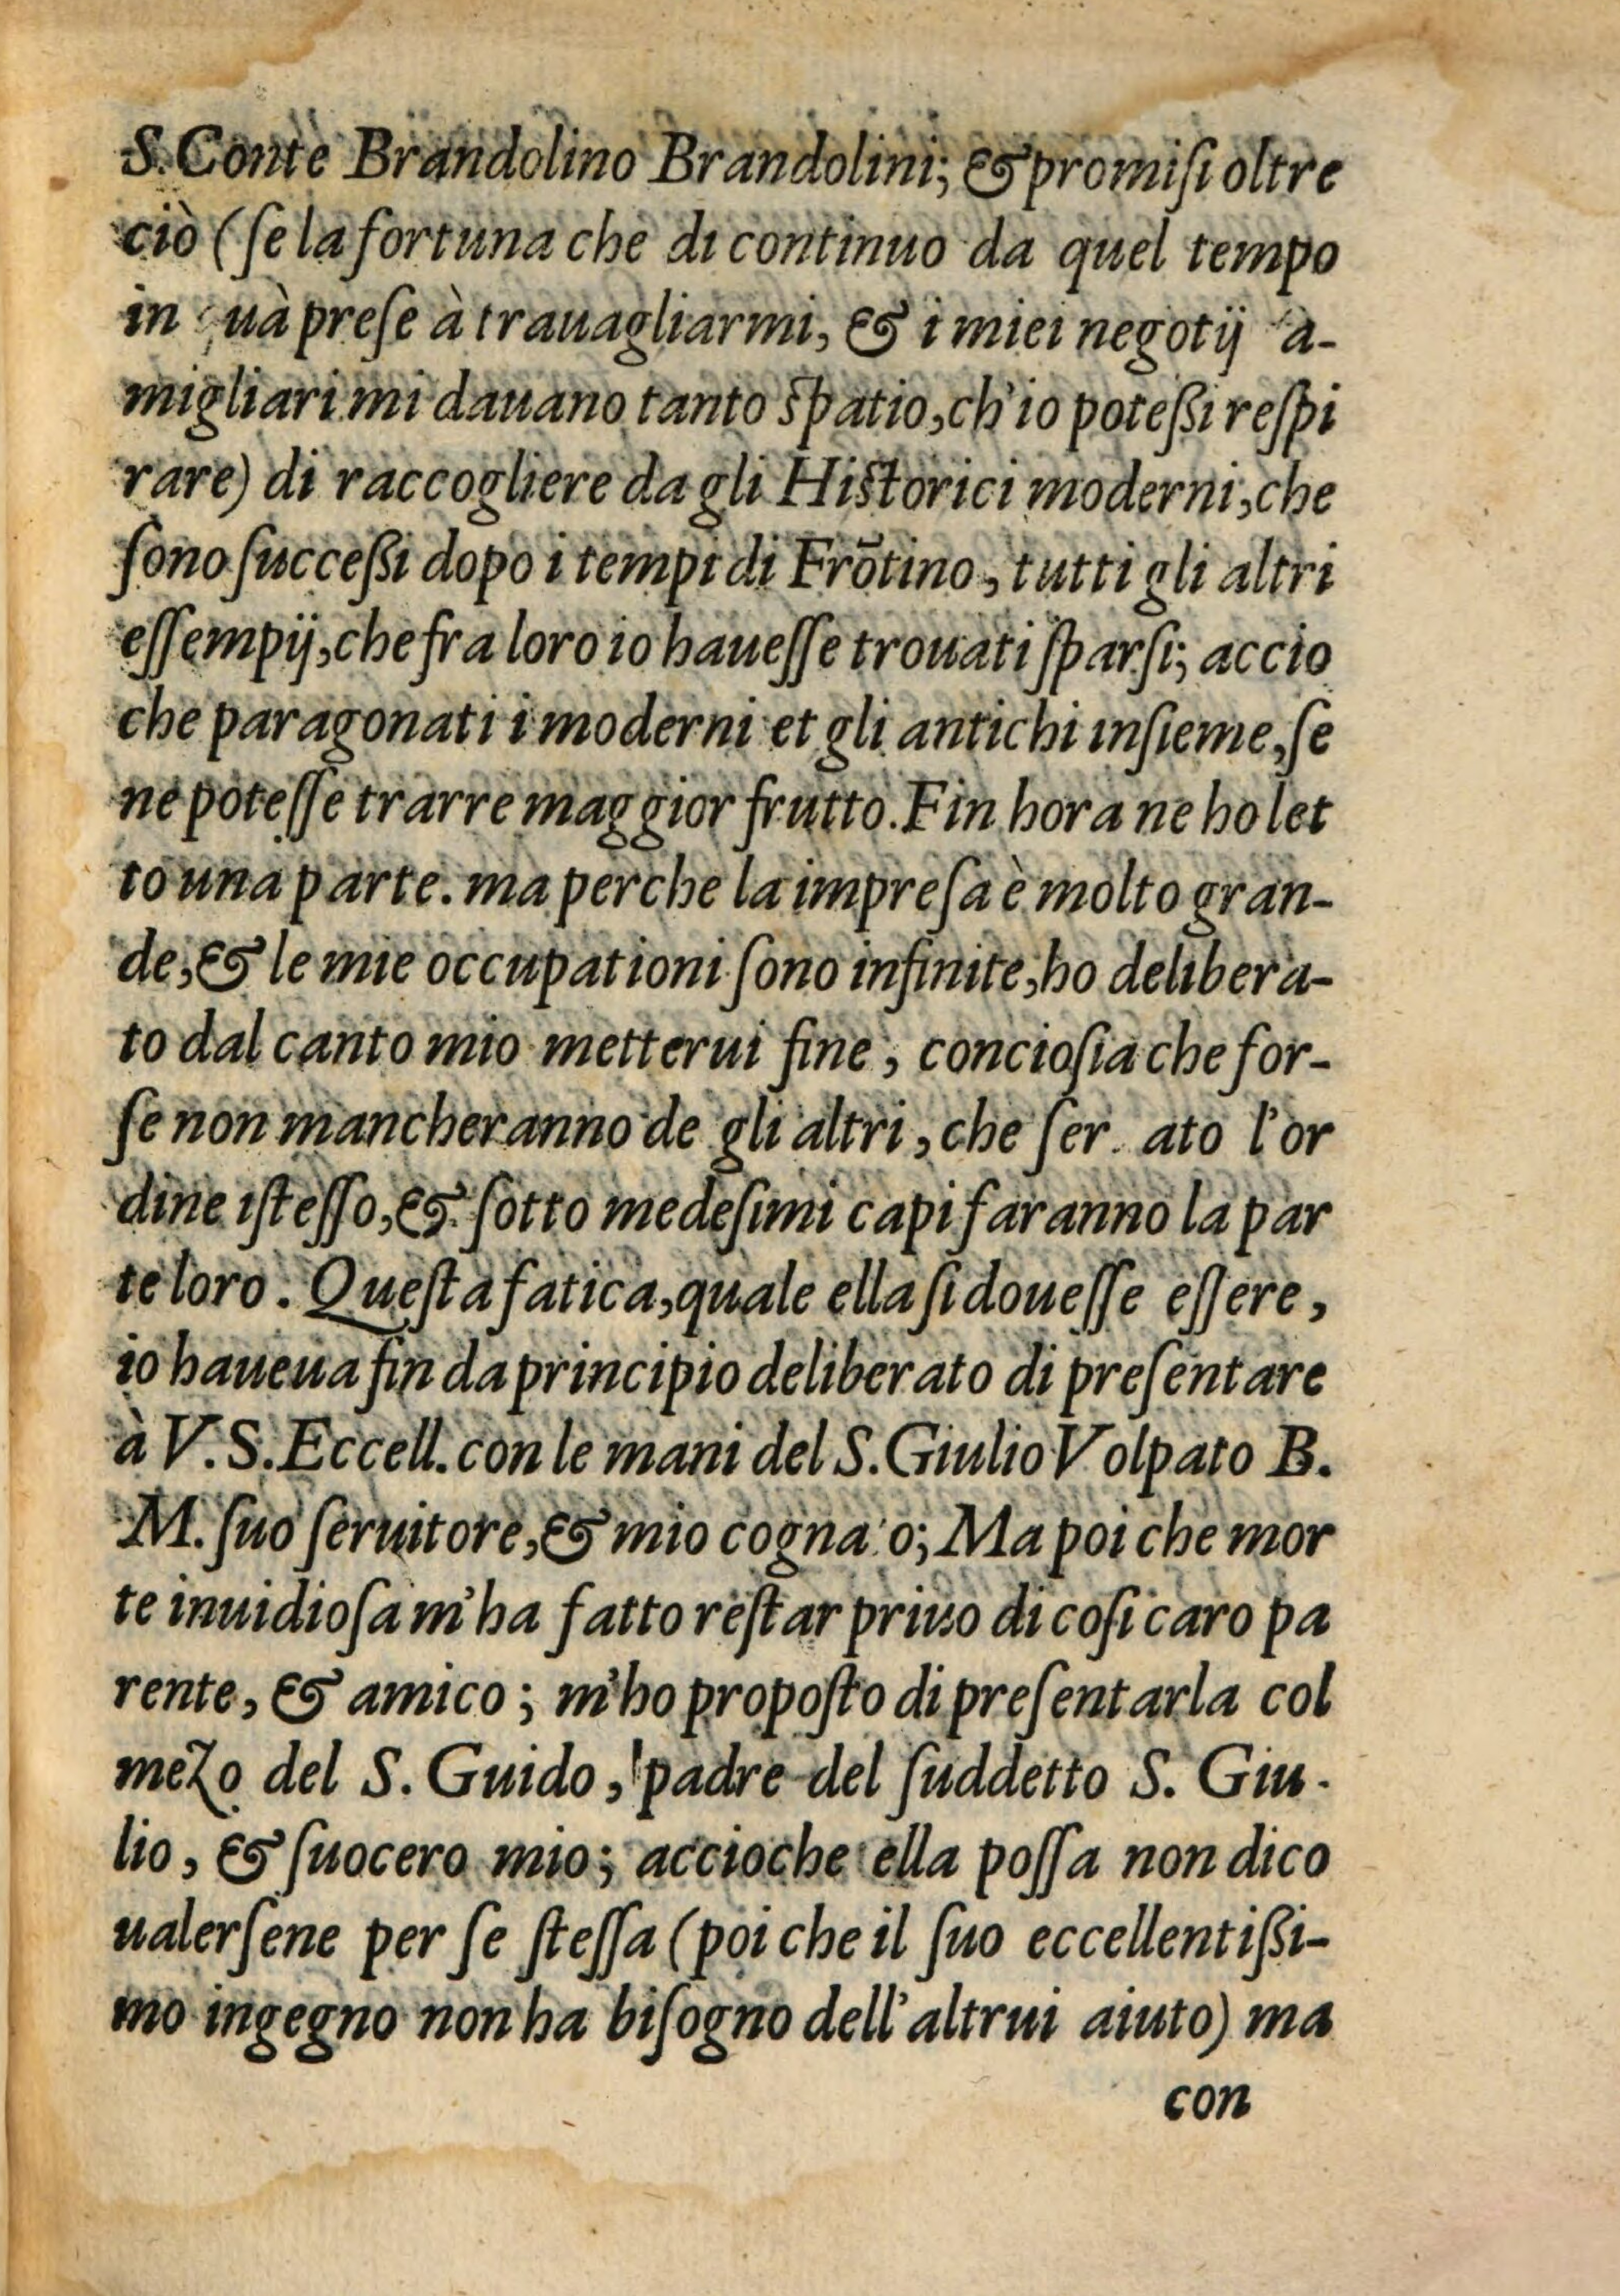 S. Conte Brandolino Brandolini; & promiſi oltre
ciò (ſe la fortuna che di continuo da quel tempo
in quà preſe à trauagliarmi, & i miei negotij a-
migliari mi dauano tanto ſpatio, ch'io poteſſi reſpi
rare) di raccogliere da gli Hiſtorici moderni, che
ſono ſucceſſi dopo i tempi di Frōtino, tutti gli altri
eſſempij, che fra loro io haueſſe trouati ſparſi; accio
che paragonati i moderni et gli antichi inſieme, ſe
ne poteſſe trarre maggior frutto. Fin hora ne ho let
to una parte. ma perche la impreſa è molto gran-
de, & le mie occupationi ſono infinite, ho delibera-
to dal canto mio metterui fine, concioſia che for-
ſe non mancheranno de gli altri, che ſer ato l'or
dine iſteſſo, & ſotto medeſimi capi faranno la par
te loro. Queſta fatica, quale ella ſi doueſſe eſſere,
io haueua fin da principio deliberato di preſentare
à V. S. Eccell. con le mani del S. Giulio Volpato B.
M. ſuo ſeruitore, & mio cogna o; Ma poi che mor
te inuidioſa m'ha fatto reſtar priuo di coſi caro pa
rente, & amico; m'ho propoſto di preſentarla col
mezo del S. Guido, padre del ſuddetto S. Giu-
lio, & ſuocero mio; accioche ella poſſa non dico
ualerſene per ſe ſteſſa (poi che il ſuo eccellentiſſi-
mo ingegno non ha biſogno dell'altrui aiuto) ma
con